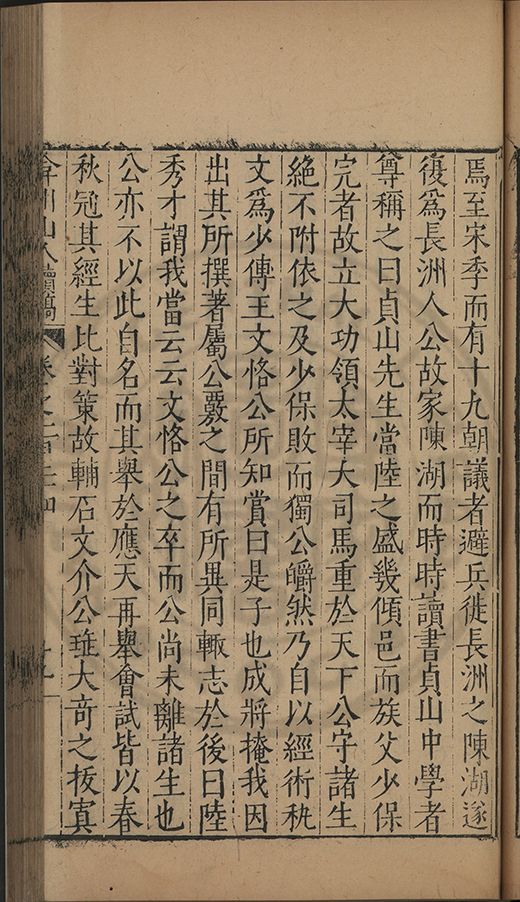 焉至宋季而有十九朝議者避兵徙長洲之陳湖遂
復爲長洲人公故家陳湖而時時讀書貞山中學者
尊稱之曰貞山先生當陸之盛幾傾邑而族父少保
完者故立大功領太宰大司馬重於天下公字諸生
絕不附依之及少保敗而獨公皭然乃自以經術秇
文爲少傳王文恪公所知賞曰是子也成將掩我因
出其所撰著屬公覈之間有所異同輙志於後曰陸
秀才謂我當云云文恪公之卒而公尚未離諸生也
公亦不以此自名而其舉於應天再舉會試皆以春
秋冠其經生比對策故輔石文介公珤大奇之拔寘
弇州山人續稿 卷之一百三十四